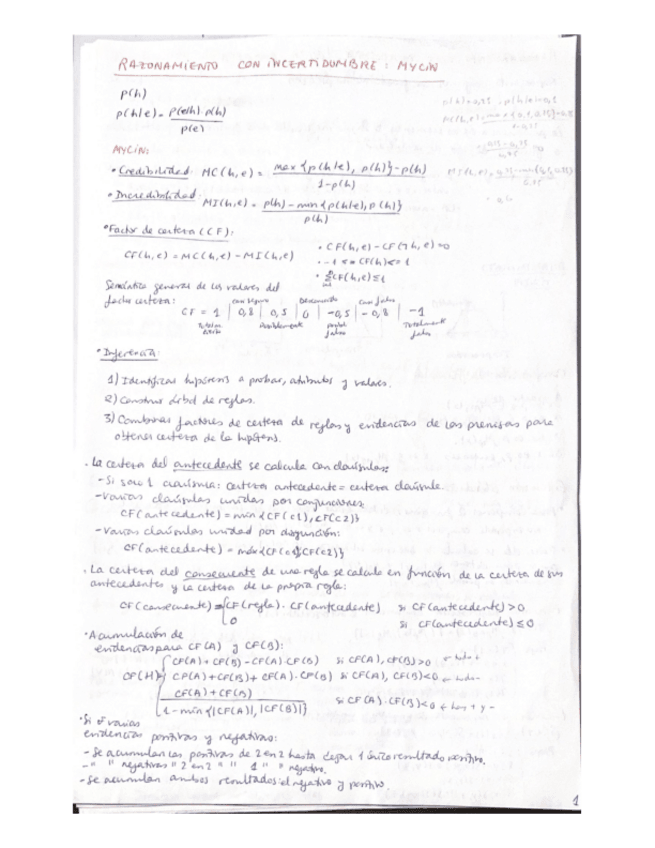 RAZONAMIENTO CON INCERTIDUMBRE: MYCIN
p(h)
p(h|e) = p(e|h)·p(h) / p(e)
MYCIN:
• Credibilidad: MC(h,e) = max{p(h|e), p(h)} - p(h) / 1-p(h)
• Incredibilidad: MI(h,e) = p(h) - min{p(h|e), p(h)} / p(h)
• Factor de certeza (CF):
CF(h,e) = MC(h,e) - MI(h,e)
• CF(h,e) - CF(¬h,e) = 0
• -1 <= CF(h) <= 1
• ΣCF(h,e) ≤ 1
Semántica general de los valores del
factor certeza:
CF = 1 | 0,8 | 0,5 | 0 | -0,5 | -0,8 | -1
casi seguro Desconocido casi falso
Posiblemente Totalmente falso
• Inferencia:
1) Identificar hipótesis a probar, atributos y valores.
2) Construir árbol de reglas.
3) Combinar factores de certeza de reglas y evidencias de las premisas para
obtener certeza de la hipótesis.
. La certeza del antecedente se calcula con claúsulas:
- Si solo 1 claúsula: certeza antecedente = certeza claúsula
- Varias claúsulas unidas por conjunciones:
CF(antecedente) = min{CF(c1), CF(c2)}
- Varias claúsulas unidad por disyunción:
CF(antecedente) = máx{CF(c1), CF(c2)}
. La certeza del consecuente de una regla se calcula en función de la certeza de sus
antecedentes y la certeza de la propia regla:
CF(consecuente) = { CF(regla) · CF(antecedente) si CF(antecedente) > 0
0 si CF(antecedente) ≤ 0
• Acumulación de
evidencias para CF(A) y CF(B):
CF(A) + CF(B) - CF(A)·CF(B) si CF(A), CF(B) > 0 ← todo +
CF(H) = { CF(A) + CF(B) + CF(A)·CF(B) si CF(A), CF(B) < 0 ← todo -
CF(A) + CF(B) / 1 - min{|CF(A)|, |CF(B)|} si CF(A)·CF(B) < 0 ← hay + y -
• Si ∃ varias
evidencias positivas y negativas:
- Se acumulan las positivas de 2 en 2 hasta dejar 1 único resultado positivo.
- " " negativas " 2 en 2 " " 1 " " negativo.
- Se acumulan ambos resultados: el negativo y positivo.
1